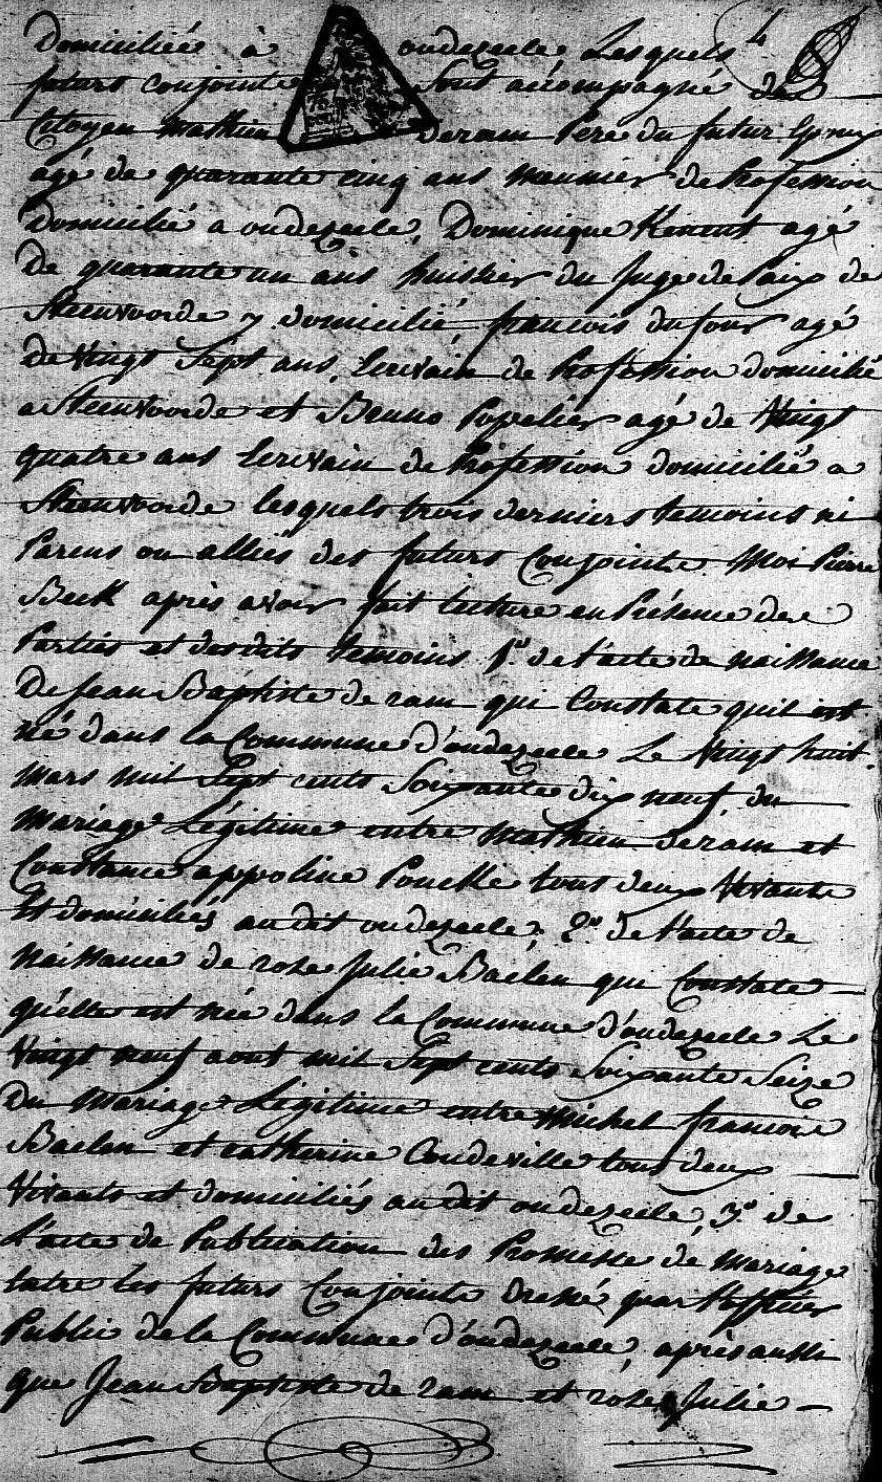 Domiciliée à oudezeele Lesquels 4
futurs conjoints sont accompagné du
Citoyen mathieu deram Pere du futur Epoux
agé de quarante cinq ans meunier de Profession
Domicilié a oudezeele, Dominique agé
De quarante un ans huissier du Juge de Paix de
Steenvoorde y domicilié, francois dufour agé
de Vingt Sept ans, Ecrivain de Profession domicilié
a Steenvoorde et Bruno Popelier agé de Vingt
quatre ans Ecrivain de Profession domicilié a
Steenvoorde lesquels trois derniers temoins ni
Parens ou alliés des futurs Conjoints. Moi Pierre
Beck après avoir fait lecture en Présence des
Parties et desdits temoins 1.º de l'acte de naissance
De Jean Baptiste de ram qui Constate quil est
né dans la Commune d'oudezeele Le Vingt huit
mars mil Sept cents Soixante dix neuf, du
mariage Légitime entre mathieu deram et
Constance appoline tout deux Vivants
Et domiciliés au dit oudezeele, 2.º de l'acte de
Naissance de rose Julie Baelen qui Constate
quélle est née dans la Commune d'oudezeele Le
Vingt neuf aout mil Sept cents Soixante Seize
Du mariage Légitime entre Michel francois
Baelen et catherine Coudeville tous deux
Vivants et domiciliés au dit oudezeele, 3.º de
L'acte de Publication des Promesse de mariage
Entre les futurs Conjoints Dressé par l'officier
Public de la Commune d'oudezeele, après aussi
que Jean Baptiste de ram et rose Julie